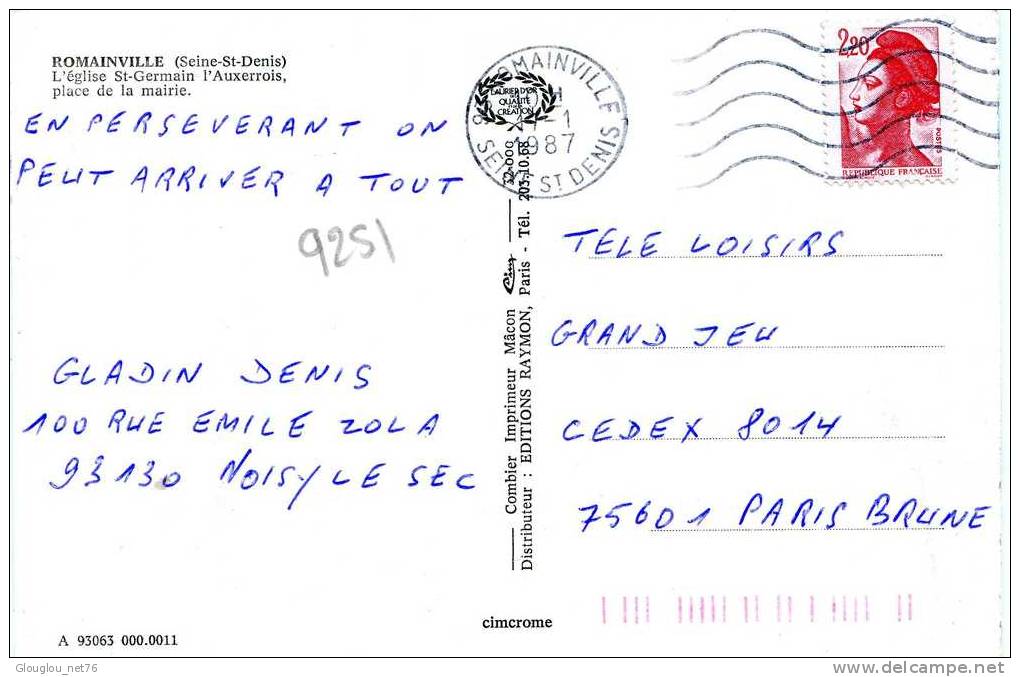 ROMAINVILLE (Seine-St-Denis)
L'église St-Germain l'Auxerrois,
place de la mairie.
EN PERSEVERANT ON
PEUT ARRIVER A TOUT
9251
GLADIN DENIS
100 RUE EMILE ZOLA
93130 NOISY LE SEC
A 93063 000.0011
Combier Imprimeur Mâcon
Distributeur : EDITIONS RAYMON, Paris - Tél. 203.10.68
cimcrome
LAURIER D'OR
QUALITÉ
CRÉATION
ROMAINVILLE
1987
SEINE ST DENIS
2,20
POSTES
REPUBLIQUE FRANÇAISE
TELE LOISIRS
GRAND JEU
CEDEX 8014
75601 PARIS BRUNE
Glouglou_net76
delcampe.net